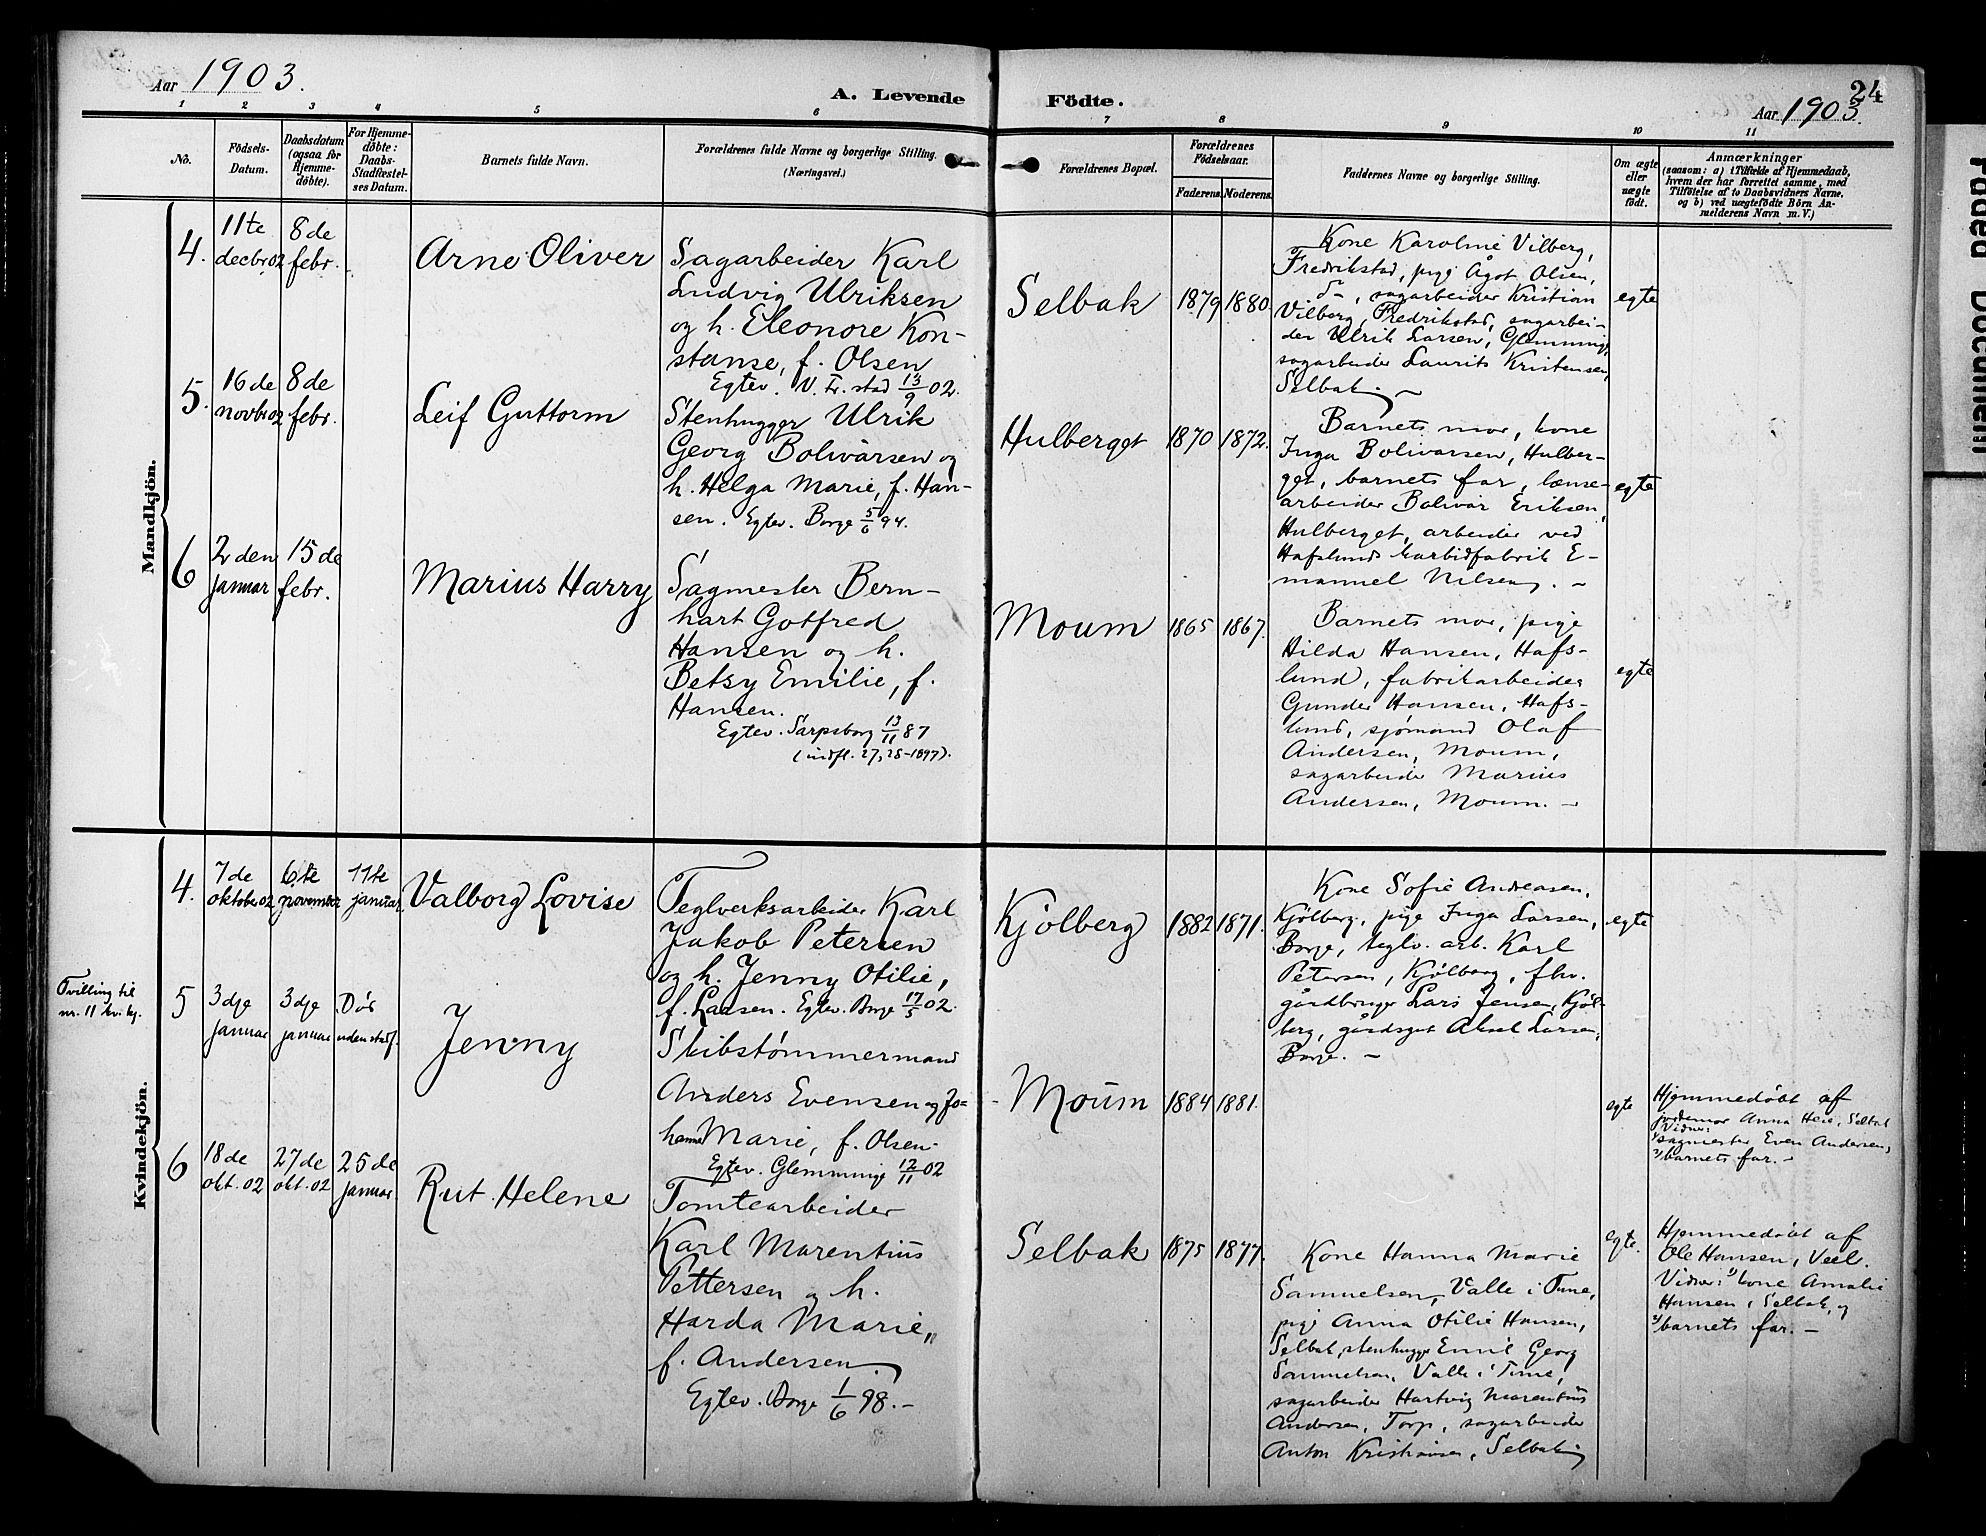 Aar 1903.
A. Levende Födte.
24
Aar 1903.
1 2 3 4 5 6 7 8 9 10 11
No.
Födsels-
Datum.
Daabsdatum
(ogsaa for
Hjemme-
döbte).
For Hjemme-
döbte:
Daabs-
Stadfæstel-
ses Datum.
Barnets fulde Navn.
Forældrenes fulde Navne og borgerlige Stilling.
(Næringsvei.)
Forældrenes Bopæl.
Forældrenes
Födselsaar.
Faderens. Moderens.
Faddernes Navne og borgerlige Stilling.
Om ægte
eller
uægte
födt.
Anmærkninger
(saasom: a) i Tilfælde af Hjemmedaab,
hvem der har forrettet samme, med
Tilföielse af to Daabsvidners Navne,
og b) ved uægtefödte Börn An-
melderens Navn m. V.)
Mandkjön.
4.
11te
decbr. 02
8de
febr.
Arne Oliver
Sagarbeider Karl
Ludvig Ulriksen
og h. Eleonore Kon-
stanse, f. Olsen
Egtev. V. Fr.stad 13/9 02.
Selbak
1879 1880.
Kone Karoline Vilberg,
Fredrikstad, pige Ågot Olsen,
do, sagarbeider Kristian
Vilberg, Fredrikstad, sagarbei-
der Ulrik Larsen, Glemminge,
sagarbeider Laurits Kristensen,
Selbak. —
egte
5.
16de
novbr 02
8de
febr.
Leif Guttorm
Stenhugger Ulrik
Georg Bolivarsen og
h. Helga Marie, f. Han-
sen. Egtev. Borge 5/6 94.
Hulberget
1870 1872.
Barnets mor, kone
Inga Bolivarsen, Hulber-
get, barnets far, lænse-
arbeider Bolivar Eriksen,
Hulberget, arbeider ved
Hafslunds karbidfabrik E-
manuel Nilsen. —
egte
6
2den
januar
15de
febr.
Marius Harry
Sagmester Bern-
hart Gotfred
Hansen og h.
Betsy Emilie, f.
Hansen.
Egtev. Sarpsborg 13/11 87
(indfl. 27,28-1897).
Moum
1865 1867.
Barnets mor, pige
Hilda Hansen, Hafs-
lund, fabrikarbeider
Gunder Hansen, Hafs-
lund, sjømand Olaf
Andersen, Moum,
sagarbeider Marius
Andersen, Moum. —
egte
Kvindekjön.
4.
7de
oktober 02
6te
november 02
11te
januar
Valborg Lovise
Teglverksarbeider Karl
Jakob Petersen
og h. Jenny Otilie,
f. Larsen. Egtev. Borge 17/5 02.
Kjølberg
1882 1871.
Kone Sofie Andreasen,
Kjølberg, pige Inga Larsen,
Borge, teglv. arb. Karl
Petersen, Kjølberg, fhv.
gårdbruger Lars Jensen, Kjøl-
berg, gårdsgut Aksel Larsen,
Borge. —
egte
Tvilling til
nr. 11 kv. kj.
5
3dje
januar
3dje
januar
Død
uden stadf.
Jenny
Skibstømmermand
Anders Evensen og Jo-
hanne Marie, f. Olsen.
Egtev. Glemminge 12/11 02
Moum
1884 1881.
egte
Hjemmedøbt af
jodemor Anna Heie, Selbak
Vidner:
1) sagmester Even Andersen,
2) barnets far. —
6
18de
okt. 02
27de
okt. 02
25de
januar.
Rut Helene
Tomtearbeider
Karl Marentius
Pettersen og h.
Harda Marie,
f. Andersen
Egtev. Borge 1/6 98. —
Selbak
1875 1877.
Kone Hanna Marie
Samuelsen, Valle i Tune,
pige Anna Otilie Hansen,
Selbak, stenhugger Emil Georg
Samuelsen, Valle i Tune,
sagarbeider Hartvig Marentius
Andersen, Torp, sagarbeider
Anton Kristiansen, Selbak.
egte.
Hjemmedøbt af
Ole Hansen, Veel.
Vidner: 1) kone Amalie
Hansen, Selbak, og
2) barnets far. —